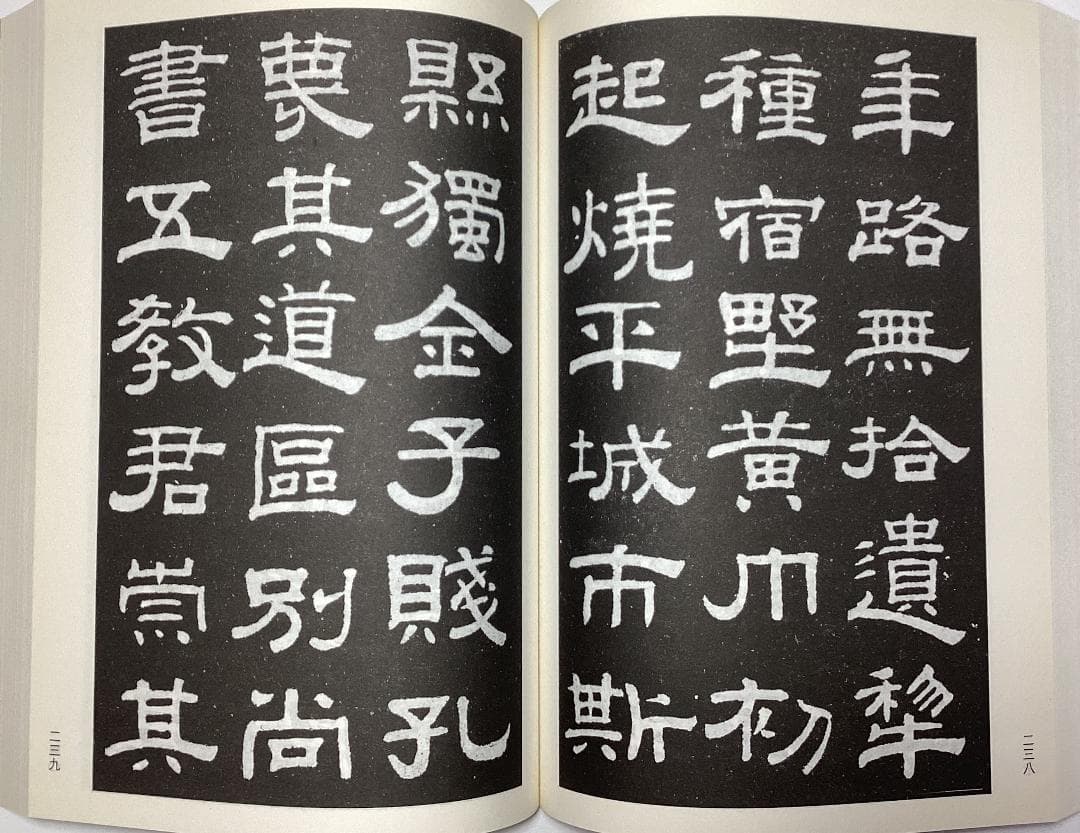 年路無拾遺犂
種宿野黃巾初
起燒平城市斯
二三八
縣獨金子賤孔
蔑其道區別尚
書五教君崇其
二三九